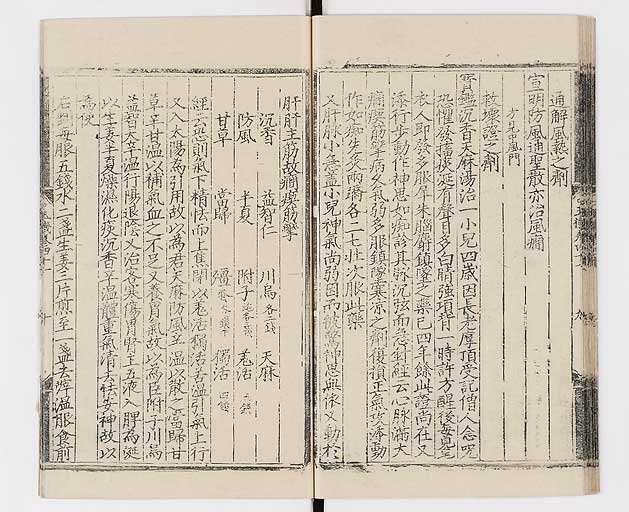 通解風熱之劑
宣明防風通聖散亦治風癎
方見中風門
救壞證之劑
寶鑑沉香天麻湯治一小兒四歲因長老摩頂受記僧人念呪
恐懼發搐痰涎有聲目多白睛強項背一時許方醒後每見
衣人即發多服犀朱腦麝鎮墜之藥已四年餘此證尚在又
添行步動作神思如癡診其脉沉弦而急針經云心脉滿大
癎瘈筋攣病久氣弱多服鎮墜寒凉之劑復損正氣故添動
作如癡先灸兩蹻各二七壯次服此藥
又肝脉小急蓋小兒神氣尚弱因而被驚神思無依又動於
肝肝主筋故癎瘈筋攣
沉香 益智仁 川烏各二錢 天麻
防風 半夏 附子 羌活
甘草 當歸 獨活四錢
經云恐則氣下精怯而上焦閉以羌活獨活苦温引氣上行
又入太陽爲引用故以爲君天麻防風辛温以散之當歸甘
草辛甘温以補氣血之不足又養胃氣故以爲臣附子川烏
益智大辛温行陽退陰又治客寒傷胃腎主五液入脾爲涎
以生姜半夏燥濕化痰沉香辛温體重氣清去怯安神故以
爲使
右剉每服五錢水二盞生姜三片煎至一盞去滓温服食前